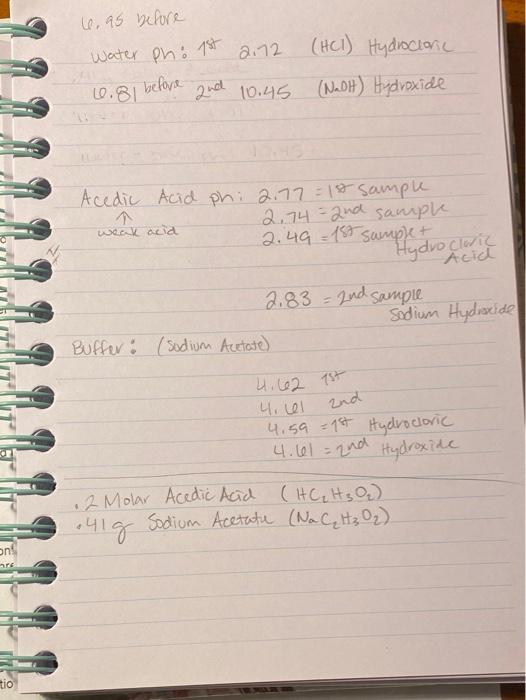 6.95 before
Water ph: 1st 2.72 (HCl) Hydrocloric
6.81 before 2nd 10.45 (NaOH) Hydroxide
Acedic Acid ph: 2.77 = 1st sample
↑ 2.74 = 2nd sample
weak acid 2.49 = 1st sample +
Hydrocloric
Acid
2.83 = 2nd sample
Sodium Hydroxide
Buffer: (Sodium Acetate)
4.62 1st
4.61 2nd
4.59 = 1st Hydrocloric
4.61 = 2nd Hydroxide
.2 Molar Acedic Acid (HC₂H₃O₂)
.41g Sodium Acetate (NaC₂H₃O₂)
tio